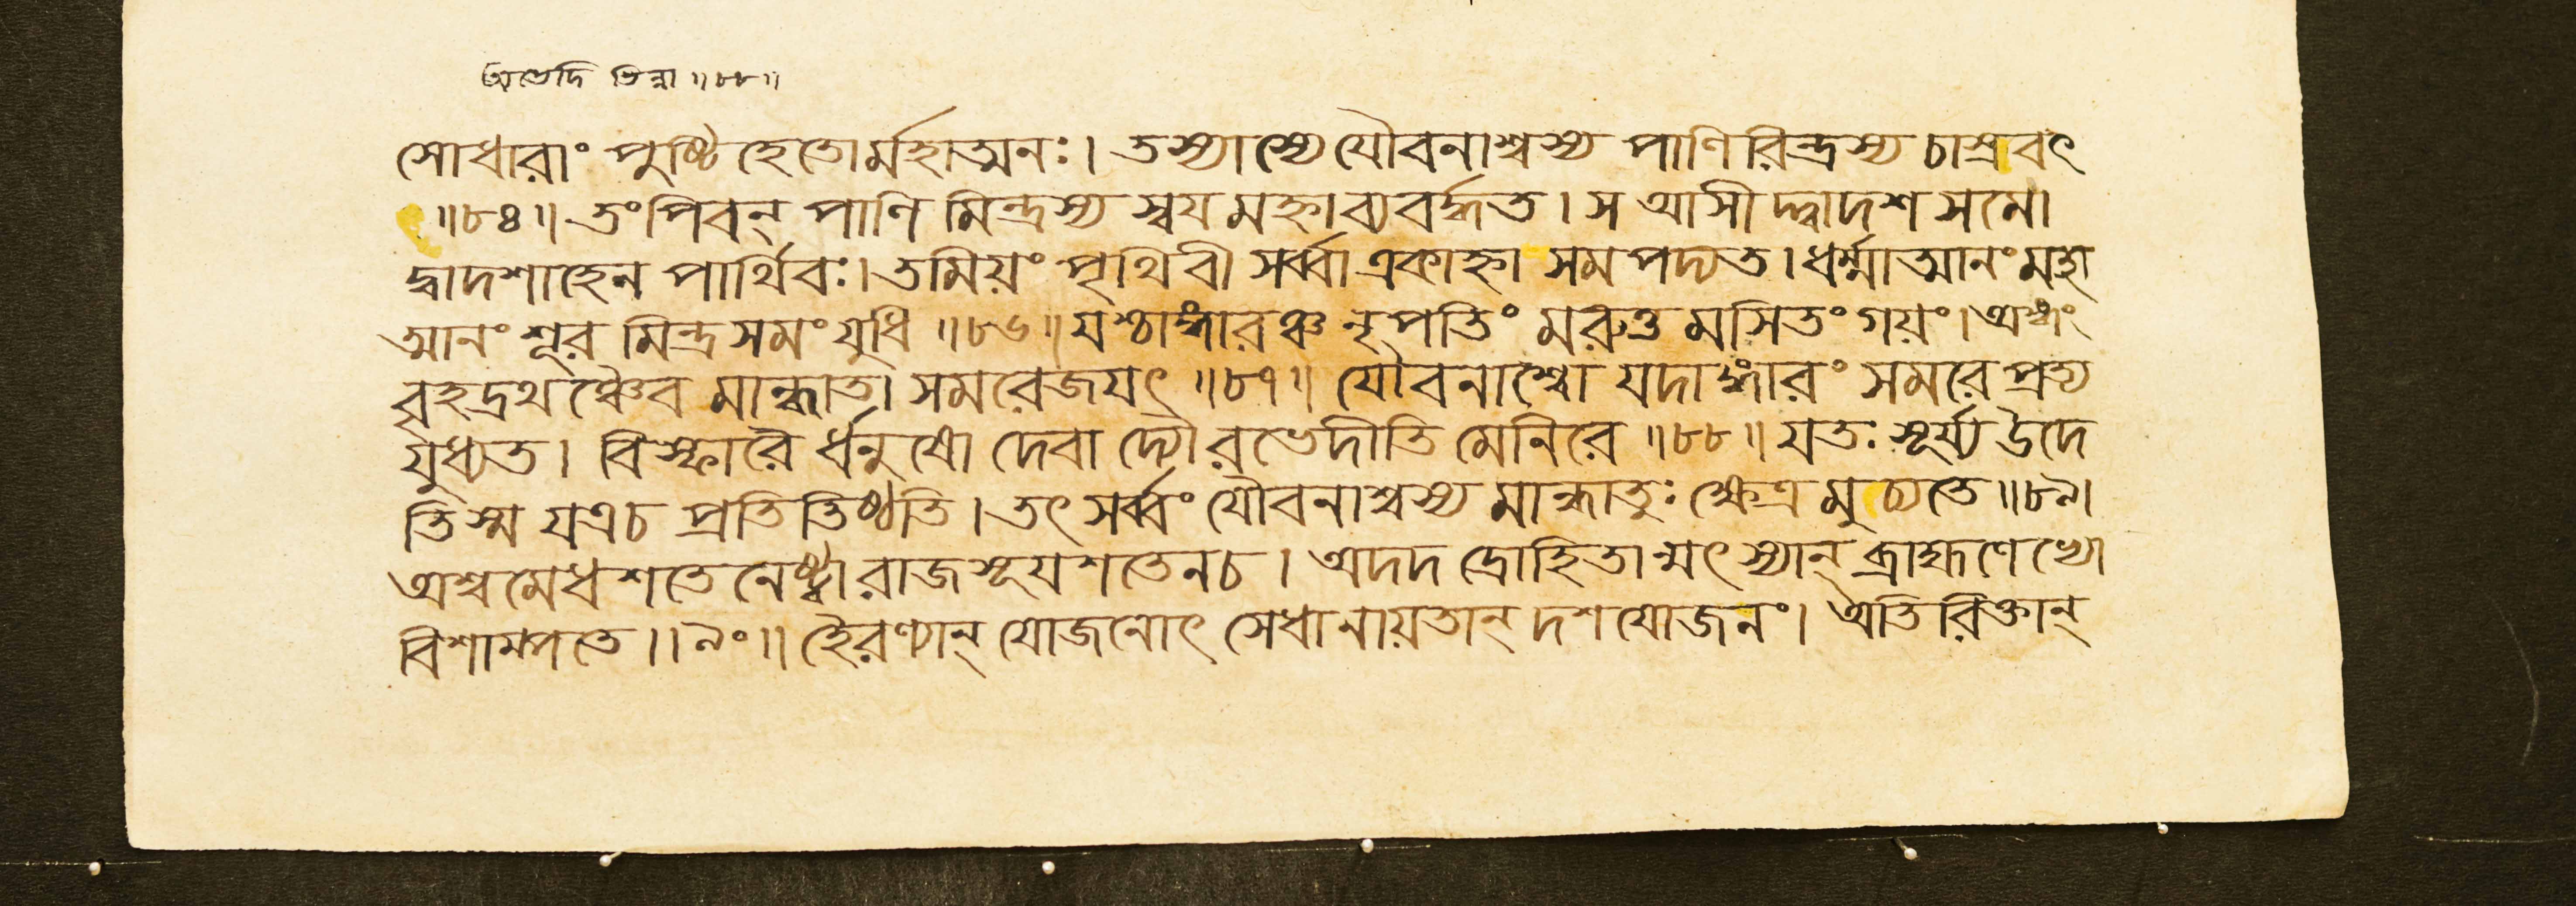 অভেদি ভিন্না ॥৮৮॥
সোধারাং পুষ্টি হেতোর্মহাত্মনঃ। তস্যাস্যে যৌবনাশ্বস্য পাণিরিন্দ্রস্য চাস্রবৎ
॥৮৪॥ তংপিবন্ পাণি মিন্দ্রস্য স্বয মহ্নাব্যবর্দ্ধত। স আসী দ্দ্বাদশ সমো
দ্বাদশাহেন পার্থিবঃ। তমিয়ং পৃথিবী সর্ব্বা একাহ্না সমপদ্যত। ধর্ম্মাত্মানং মহা
ত্মানং শূর মিন্দ্রসমং যুধি ॥৮৬॥ যশ্চাঙ্গারঞ্চ নৃপতিং মরুত্ত মসিতং গয়ং। অঙ্গং
বৃহদ্রথ ঞ্চৈব মান্ধাতা সমরেজযৎ ॥৮৭॥ যৌবনাশ্বো যদাঙ্গারং সমরে প্রত্য
যুধ্যত। বিস্ফারৈ র্ধনুষো দেবা দ্যৌরভেদীতি মেনিরে ॥৮৮॥ যতঃ সূর্য্য উদে
তিস্ম যত্রচ প্রতিতিষ্ঠতি। তৎ সর্ব্বং যৌবনাশ্বস্য মান্ধাতুঃ ক্ষেত্র মুচ্যতে ॥৮৯।
অশ্বমেধ শতেনেষ্ট্বা রাজসূয শতেনচ। অদদ দ্রোহিতান্মৎস্যান্ ব্রাহ্মণেভ্যো
বিশাম্পতে ॥৯০॥ হৈরণ্যান্ যোজনোৎ সেধানায়তান্ দশযোজনং। অতিরিক্তান্